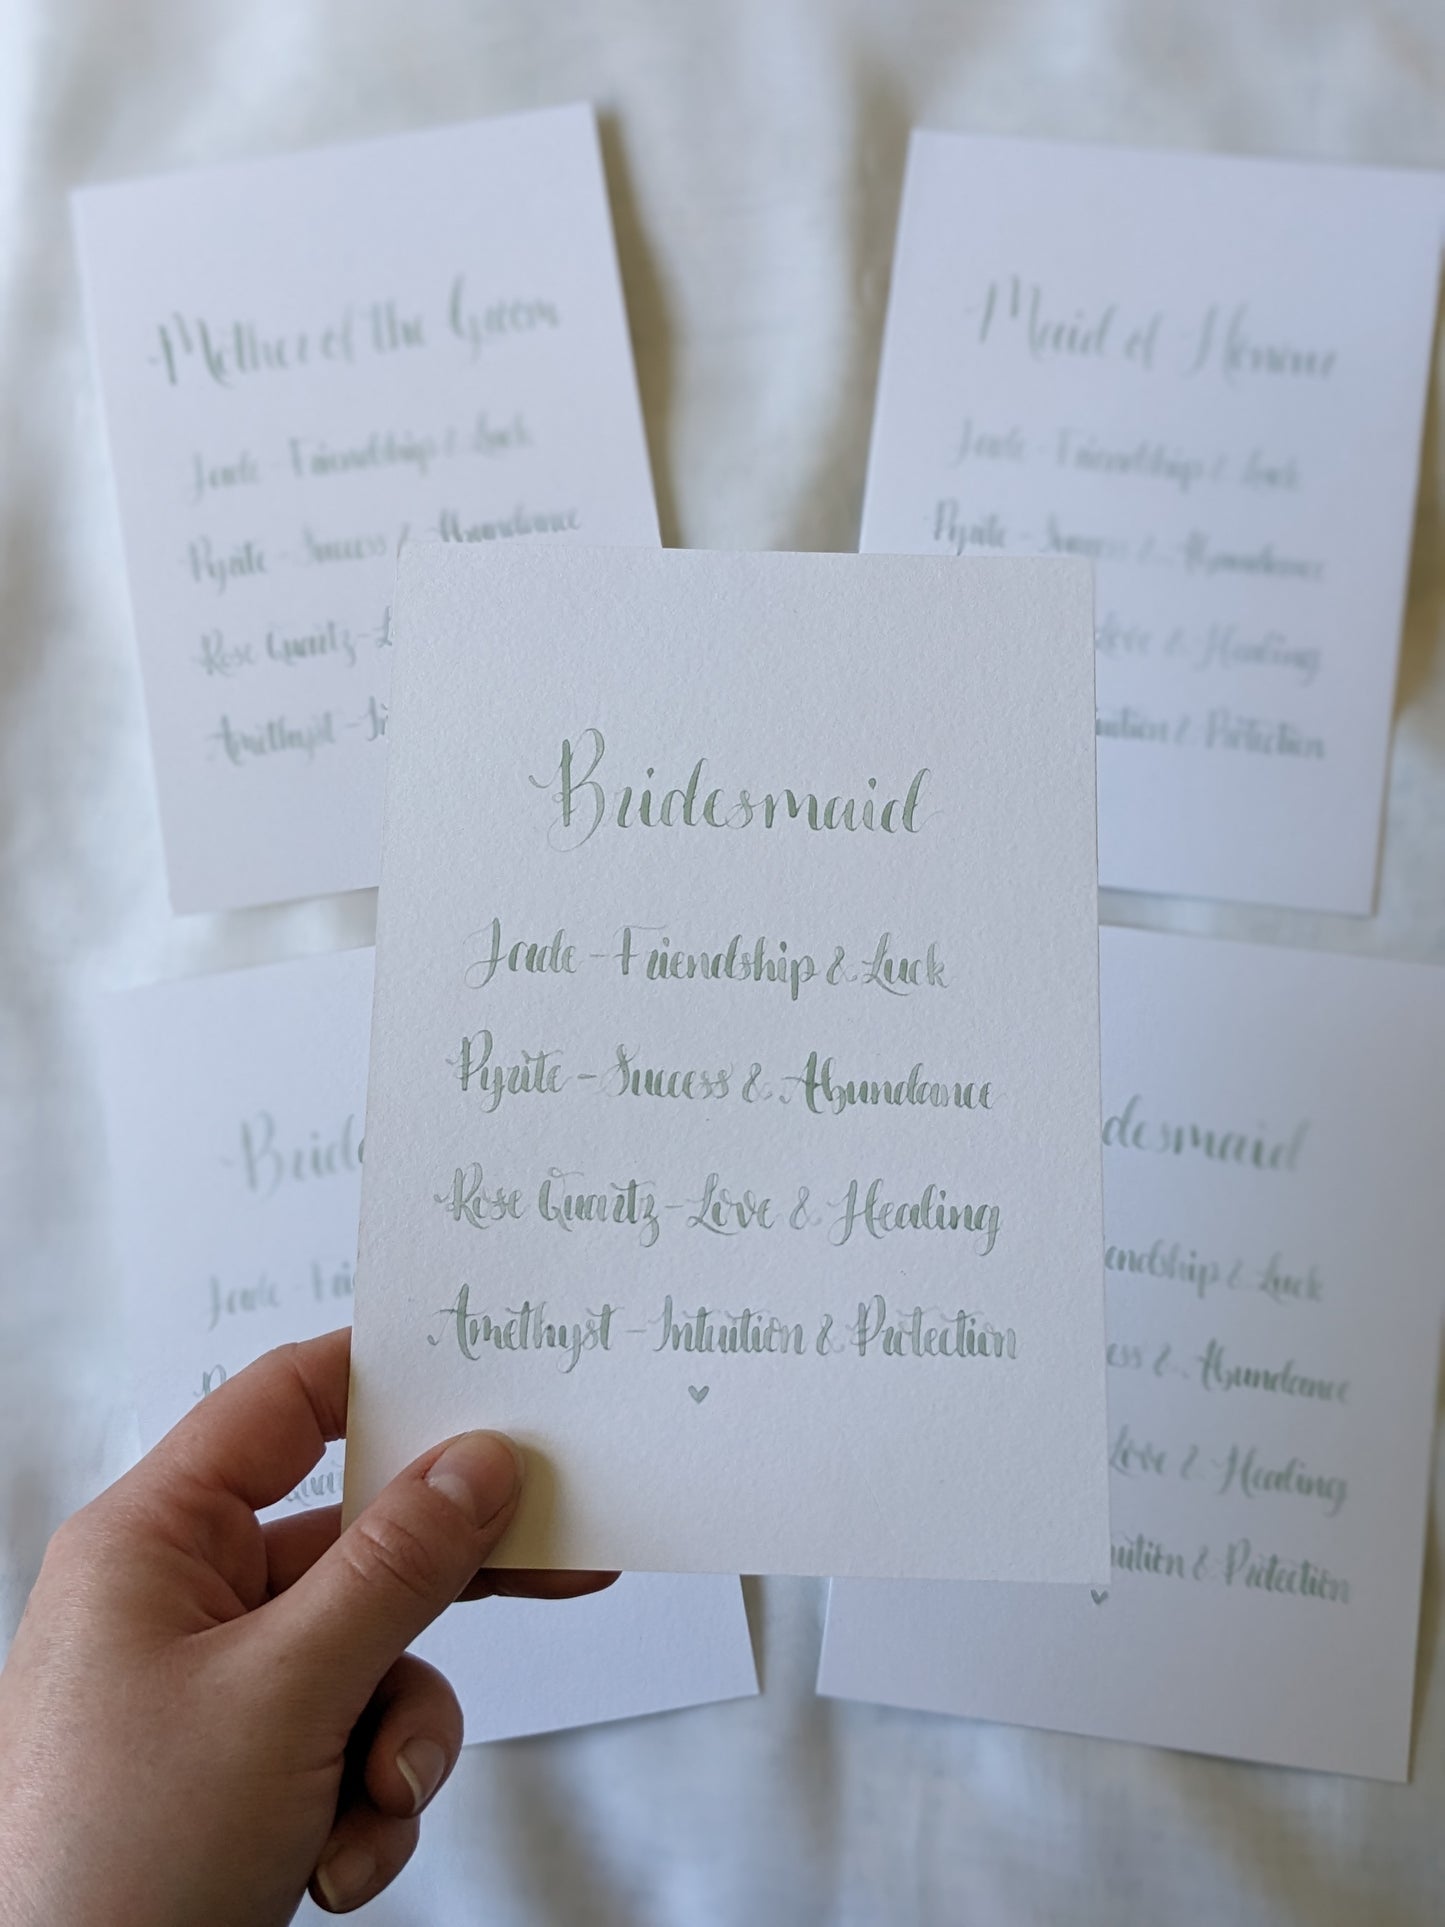 Mother of the Groom
Jade - Friendship & Luck
Pyrite - Success & Abundance
Rose Quartz - L
Amethyst - In
Maid of Honour
Jade - Friendship & Luck
Pyrite - Success & Abundance
Love & Healing
tuition & Protection
Bridesmaid
Jade - Friendship & Luck
Pyrite - Success & Abundance
Rose Quartz - Love & Healing
Amethyst - Intuition & Protection
Bride
Jade - Frie
Quar
desmaid
endship & Luck
ess & Abundance
Love & Healing
tuition & Protection